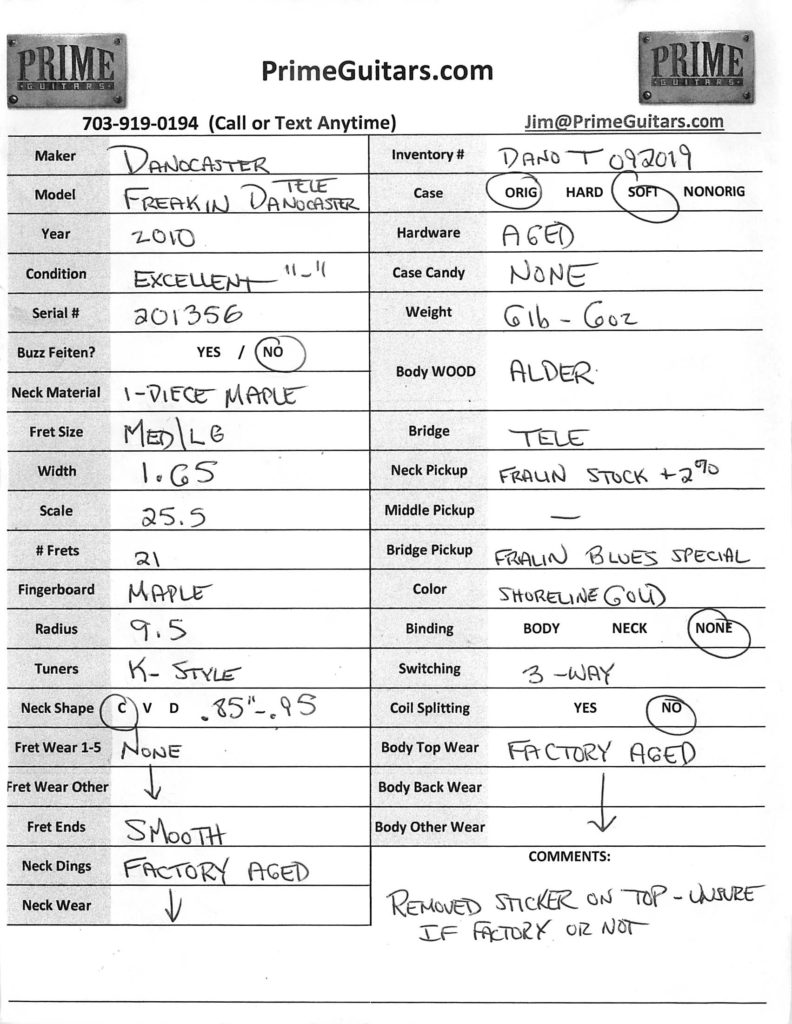 PRIME
GUITARS
PrimeGuitars.com
PRIME
GUITARS
703-919-0194 (Call or Text Anytime)
Jim@PrimeGuitars.com
Maker DANOCASTER
Model FREAKIN TELE DANOCASTER
Year 2010
Condition EXCELLENT "-"
Serial # 201356
Buzz Feiten? YES / NO
Neck Material 1-PIECE MAPLE
Fret Size MED\LG
Width 1.65
Scale 25.5
# Frets 21
Fingerboard MAPLE
Radius 9.5
Tuners K-STYLE
Neck Shape C V D .85"-.95
Fret Wear 1-5 NONE
Fret Wear Other ↓
Fret Ends SMOOTH
Neck Dings FACTORY AGED
Neck Wear ↓
Inventory # DANO T 092019
Case ORIG HARD SOFT NONORIG
Hardware AGED
Case Candy NONE
Weight 6lb - 6oz
Body WOOD ALDER
Bridge TELE
Neck Pickup FRALIN STOCK +2%
Middle Pickup —
Bridge Pickup FRALIN BLUES SPECIAL
Color SHORELINE GOLD
Binding BODY NECK NONE
Switching 3-WAY
Coil Splitting YES NO
Body Top Wear FACTORY AGED
Body Back Wear
Body Other Wear ↓
COMMENTS:
REMOVED STICKER ON TOP - UNSURE
IF FACTORY OR NOT